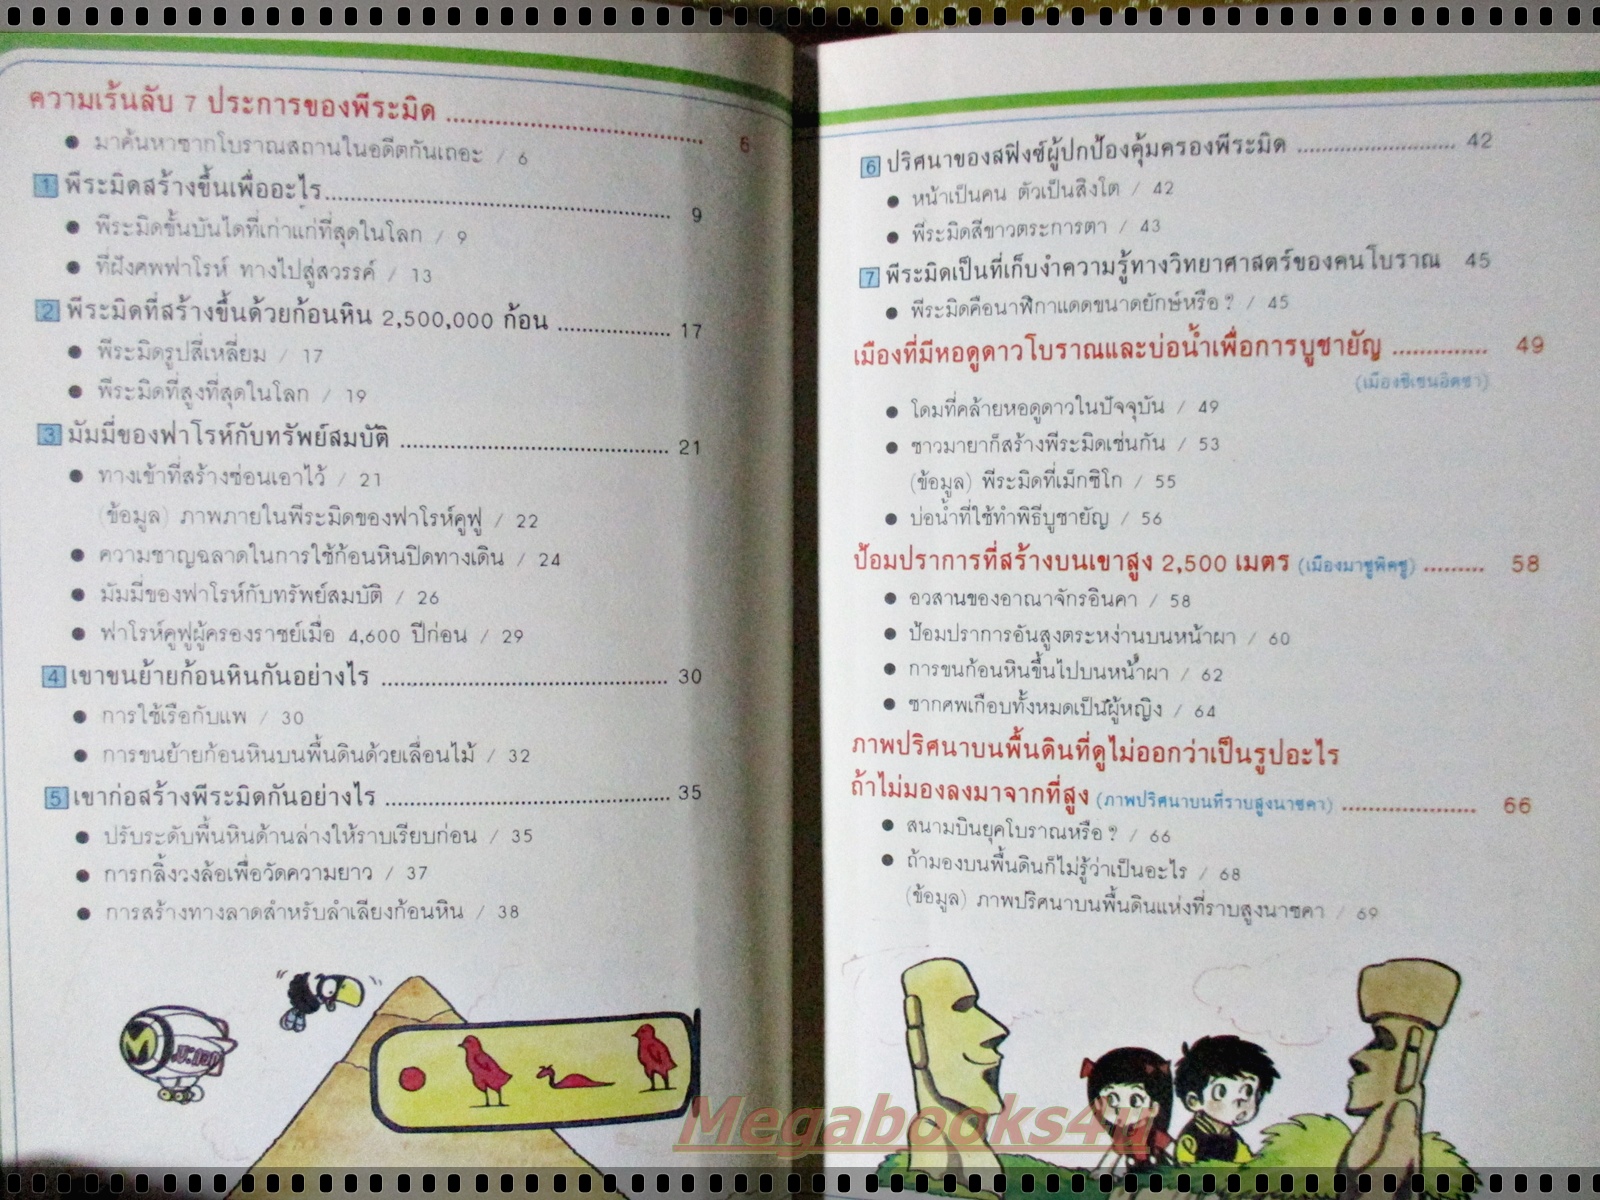 ความเร้นลับ 7 ประการของพีระมิด ........................ 6
● มาค้นหาซากโบราณสถานในอดีตกันเถอะ / 6
1 พีระมิดสร้างขึ้นเพื่ออะไร........................ 9
● พีระมิดขั้นบันไดที่เก่าแก่ที่สุดในโลก / 9
● ที่ฝังศพฟาโรห์ ทางไปสู่สวรรค์ / 13
2 พีระมิดที่สร้างขึ้นด้วยก้อนหิน 2,500,000 ก้อน ............ 17
● พีระมิดรูปสี่เหลี่ยม / 17
● พีระมิดที่สูงที่สุดในโลก / 19
3 มัมมี่ของฟาโรห์กับทรัพย์สมบัติ ........................ 21
● ทางเข้าที่สร้างซ่อนเอาไว้ / 21
(ข้อมูล) ภาพภายในพีระมิดของฟาโรห์คูฟู / 22
● ความชาญฉลาดในการใช้ก้อนหินปิดทางเดิน / 24
● มัมมี่ของฟาโรห์กับทรัพย์สมบัติ / 26
● ฟาโรห์คูฟูผู้ครองราชย์เมื่อ 4,600 ปีก่อน / 29
4 เขาขนย้ายก้อนหินกันอย่างไร ........................ 30
● การใช้เรือกับแพ / 30
● การขนย้ายก้อนหินบนพื้นดินด้วยเลื่อนไม้ / 32
5 เขาก่อสร้างพีระมิดกันอย่างไร ........................ 35
● ปรับระดับพื้นหินด้านล่างให้ราบเรียบก่อน / 35
● การกลิ้งวงล้อเพื่อวัดความยาว / 37
● การสร้างทางลาดสำหรับลำเลียงก้อนหิน / 38
M
6 ปริศนาของสฟิงซ์ผู้ปกป้องคุ้มครองพีระมิด ................ 42
● หน้าเป็นคน ตัวเป็นสิงโต / 42
● พีระมิดสีขาวตระการตา / 43
7 พีระมิดเป็นที่เก็บงำความรู้ทางวิทยาศาสตร์ของคนโบราณ 45
● พีระมิดคือนาฬิกาแดดขนาดยักษ์หรือ ? / 45
เมืองที่มีหอดูดาวโบราณและบ่อน้ำเพื่อการบูชายัญ .............. 49
(เมืองชิเชนอิตซา)
● โดมที่คล้ายหอดูดาวในปัจจุบัน / 49
● ชาวมายาก็สร้างพีระมิดเช่นกัน / 53
(ข้อมูล) พีระมิดที่เม็กซิโก / 55
● บ่อน้ำที่ใช้ทำพิธีบูชายัญ / 56
ป้อมปราการที่สร้างบนเขาสูง 2,500 เมตร (เมืองมาชูพิคชู) ......... 58
● อวสานของอาณาจักรอินคา / 58
● ป้อมปราการอันสูงตระหง่านบนหน้าผา / 60
● การขนก้อนหินขึ้นไปบนหน้าผา / 62
● ซากศพเกือบทั้งหมดเป็นผู้หญิง / 64
ภาพปริศนาบนพื้นดินที่ดูไม่ออกว่าเป็นรูปอะไร
ถ้าไม่มองลงมาจากที่สูง (ภาพปริศนาบนที่ราบสูงนาซคา) .................. 66
● สนามบินยุคโบราณหรือ ? / 66
● ถ้ามองบนพื้นดินก็ไม่รู้ว่าเป็นอะไร / 68
(ข้อมูล) ภาพปริศนาบนพื้นดินแห่งที่ราบสูงนาซคา / 69
Megabooks4u